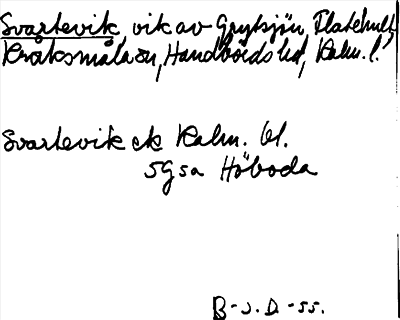 Svartevik, vik av Grytsjön, Flatehult,
Kråksmåla sn, Handbörds hd, Kalm. l.
Svartevik ek Kalm. bl.
5G5a Höboda
B-J.D.-55.